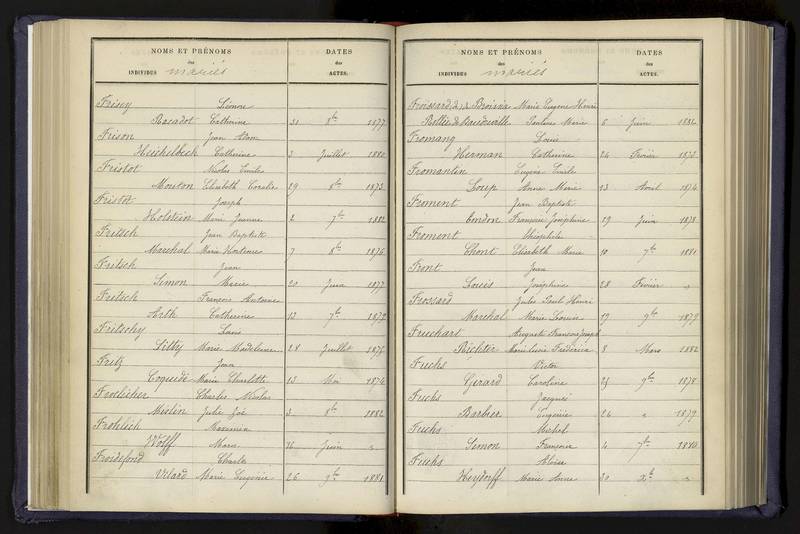 NOMS ET PRÉNOMS
des
INDIVIDUS mariés
DATES
des
ACTES.
Frisey Léonne
Rosadot Catherine 31 8bre 1877
Frison Jean Adam
Heichelbech Catherine 3 Juillet 1880
Fristot Nicolas Emile
Mouton Elisabeth Coralie 29 8bre 1873
Fristot Joseph
Holstein Marie Jeanne 2 7bre 1882
Fritsch Jean Baptiste
Marchal Marie 7 8bre 1876
Fritsch Jean
Simon Marie 20 Juin 1877
Fritsch François Antoine
Arth Catherine 12 7bre 1872
Fritschy Louis
Litty Marie Madeleine 28 Juillet 1875
Fritz Jean
Coquidé Marie Charlotte 13 Mai 1874
Froelicher Charles Nicolas
Mislin Julie Zoé 3 8bre 1882
Frohlich Maximin
Wolff Marie 16 Juin "
Froidefond Charles
Vilard Marie Eugénie 26 9bre 1881
NOMS ET PRÉNOMS
des
INDIVIDUS mariés
DATES
des
ACTES.
Froissard de Broissia Marie Eugène Henri
Rollée de Baudouville Pauline Marie 6 Juin 1882
Fromang Louis
Herman Catherine 24 Février 1873
Fromantin Eugène Emile
Loup Anne Marie 13 Avril 1874
Froment Jean Baptiste
Cordon Françoise Joséphine 19 Juin 1878
Froment Théophile
Chont Elisabeth Marie 10 7bre 1881
Front Jean
Louis Joséphine 28 Février "
Frossard Jules Paul Henri
Marchal Marie Louise 17 9bre 1879
Fruchart Auguste François Joseph
Richter Marie Lucie Frédérica 8 Mars 1882
Fuchs Victor
Gerard Caroline 25 9bre 1878
Fuchs Jacques
Barbier Eugénie 26 " 1879
Fuchs Michel
Simon Françoise 4 7bre 1880
Fuchs Aloïse
Heydorff Marie Anne 30 Xbre "